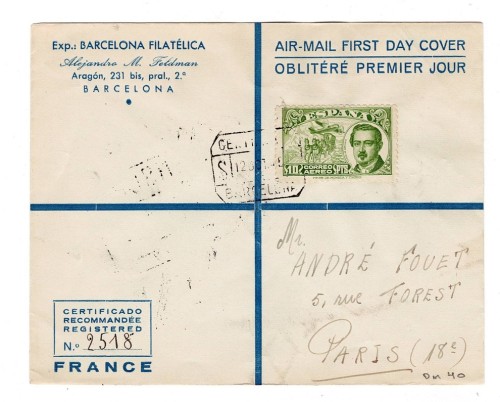 Exp.: BARCELONA FILATÉLICA
Alejandro M. Feldman
Aragón, 231 bis, pral., 2.º
BARCELONA
AIR-MAIL FIRST DAY COVER
OBLITÉRÉ PREMIER JOUR
ESPAÑA
10 CORREO AEREO PTS
BARCELONA
Mr.
ANDRÉ FOUET
5, rue FOREST
PARIS (18e)
CERTIFICADO
RECOMMANDÉE
REGISTERED
N.º 2518
FRANCE